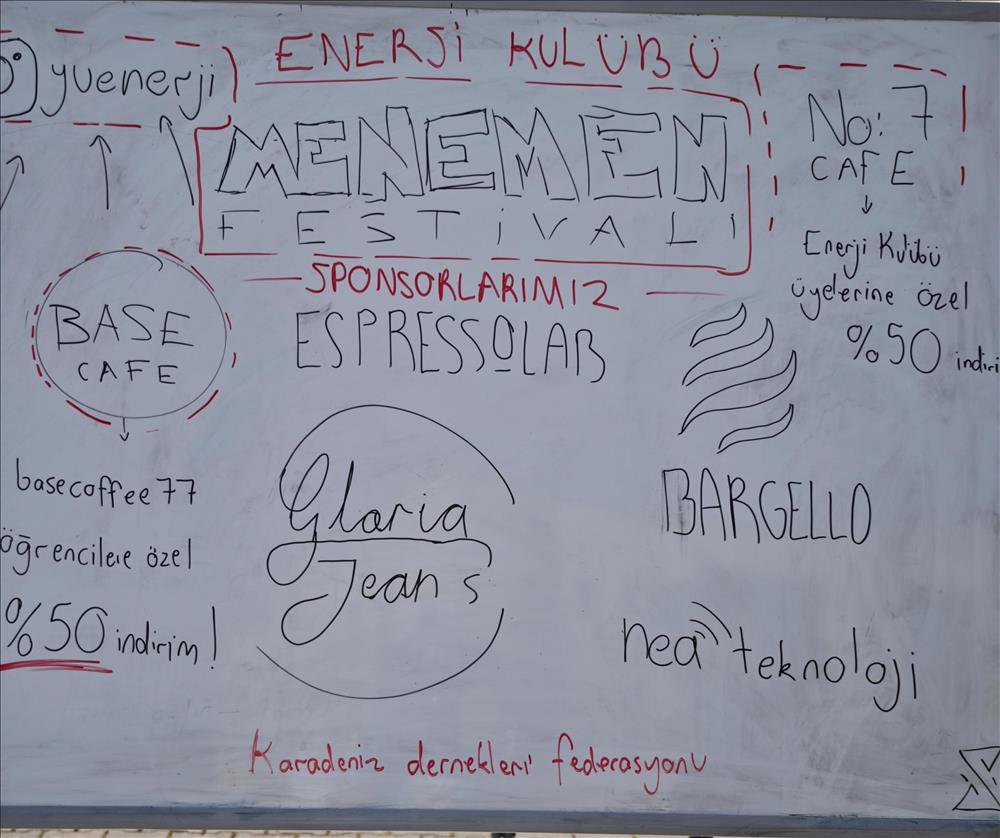 ENERJİ KULÜBÜ
yuenerji
MENEMEN
FESTİVALİ
No: 7
CAFE
Enerji Kulübü
üyelerine özel
%50 indiri
SPONSORLARIMIZ
BASE
CAFE
basecoffee77
öğrencilere özel
%50 indirim!
ESPRESSOLAB
Gloria
Jean s
BARGELLO
nea teknoloji
Karadeniz dernekleri federasyonu